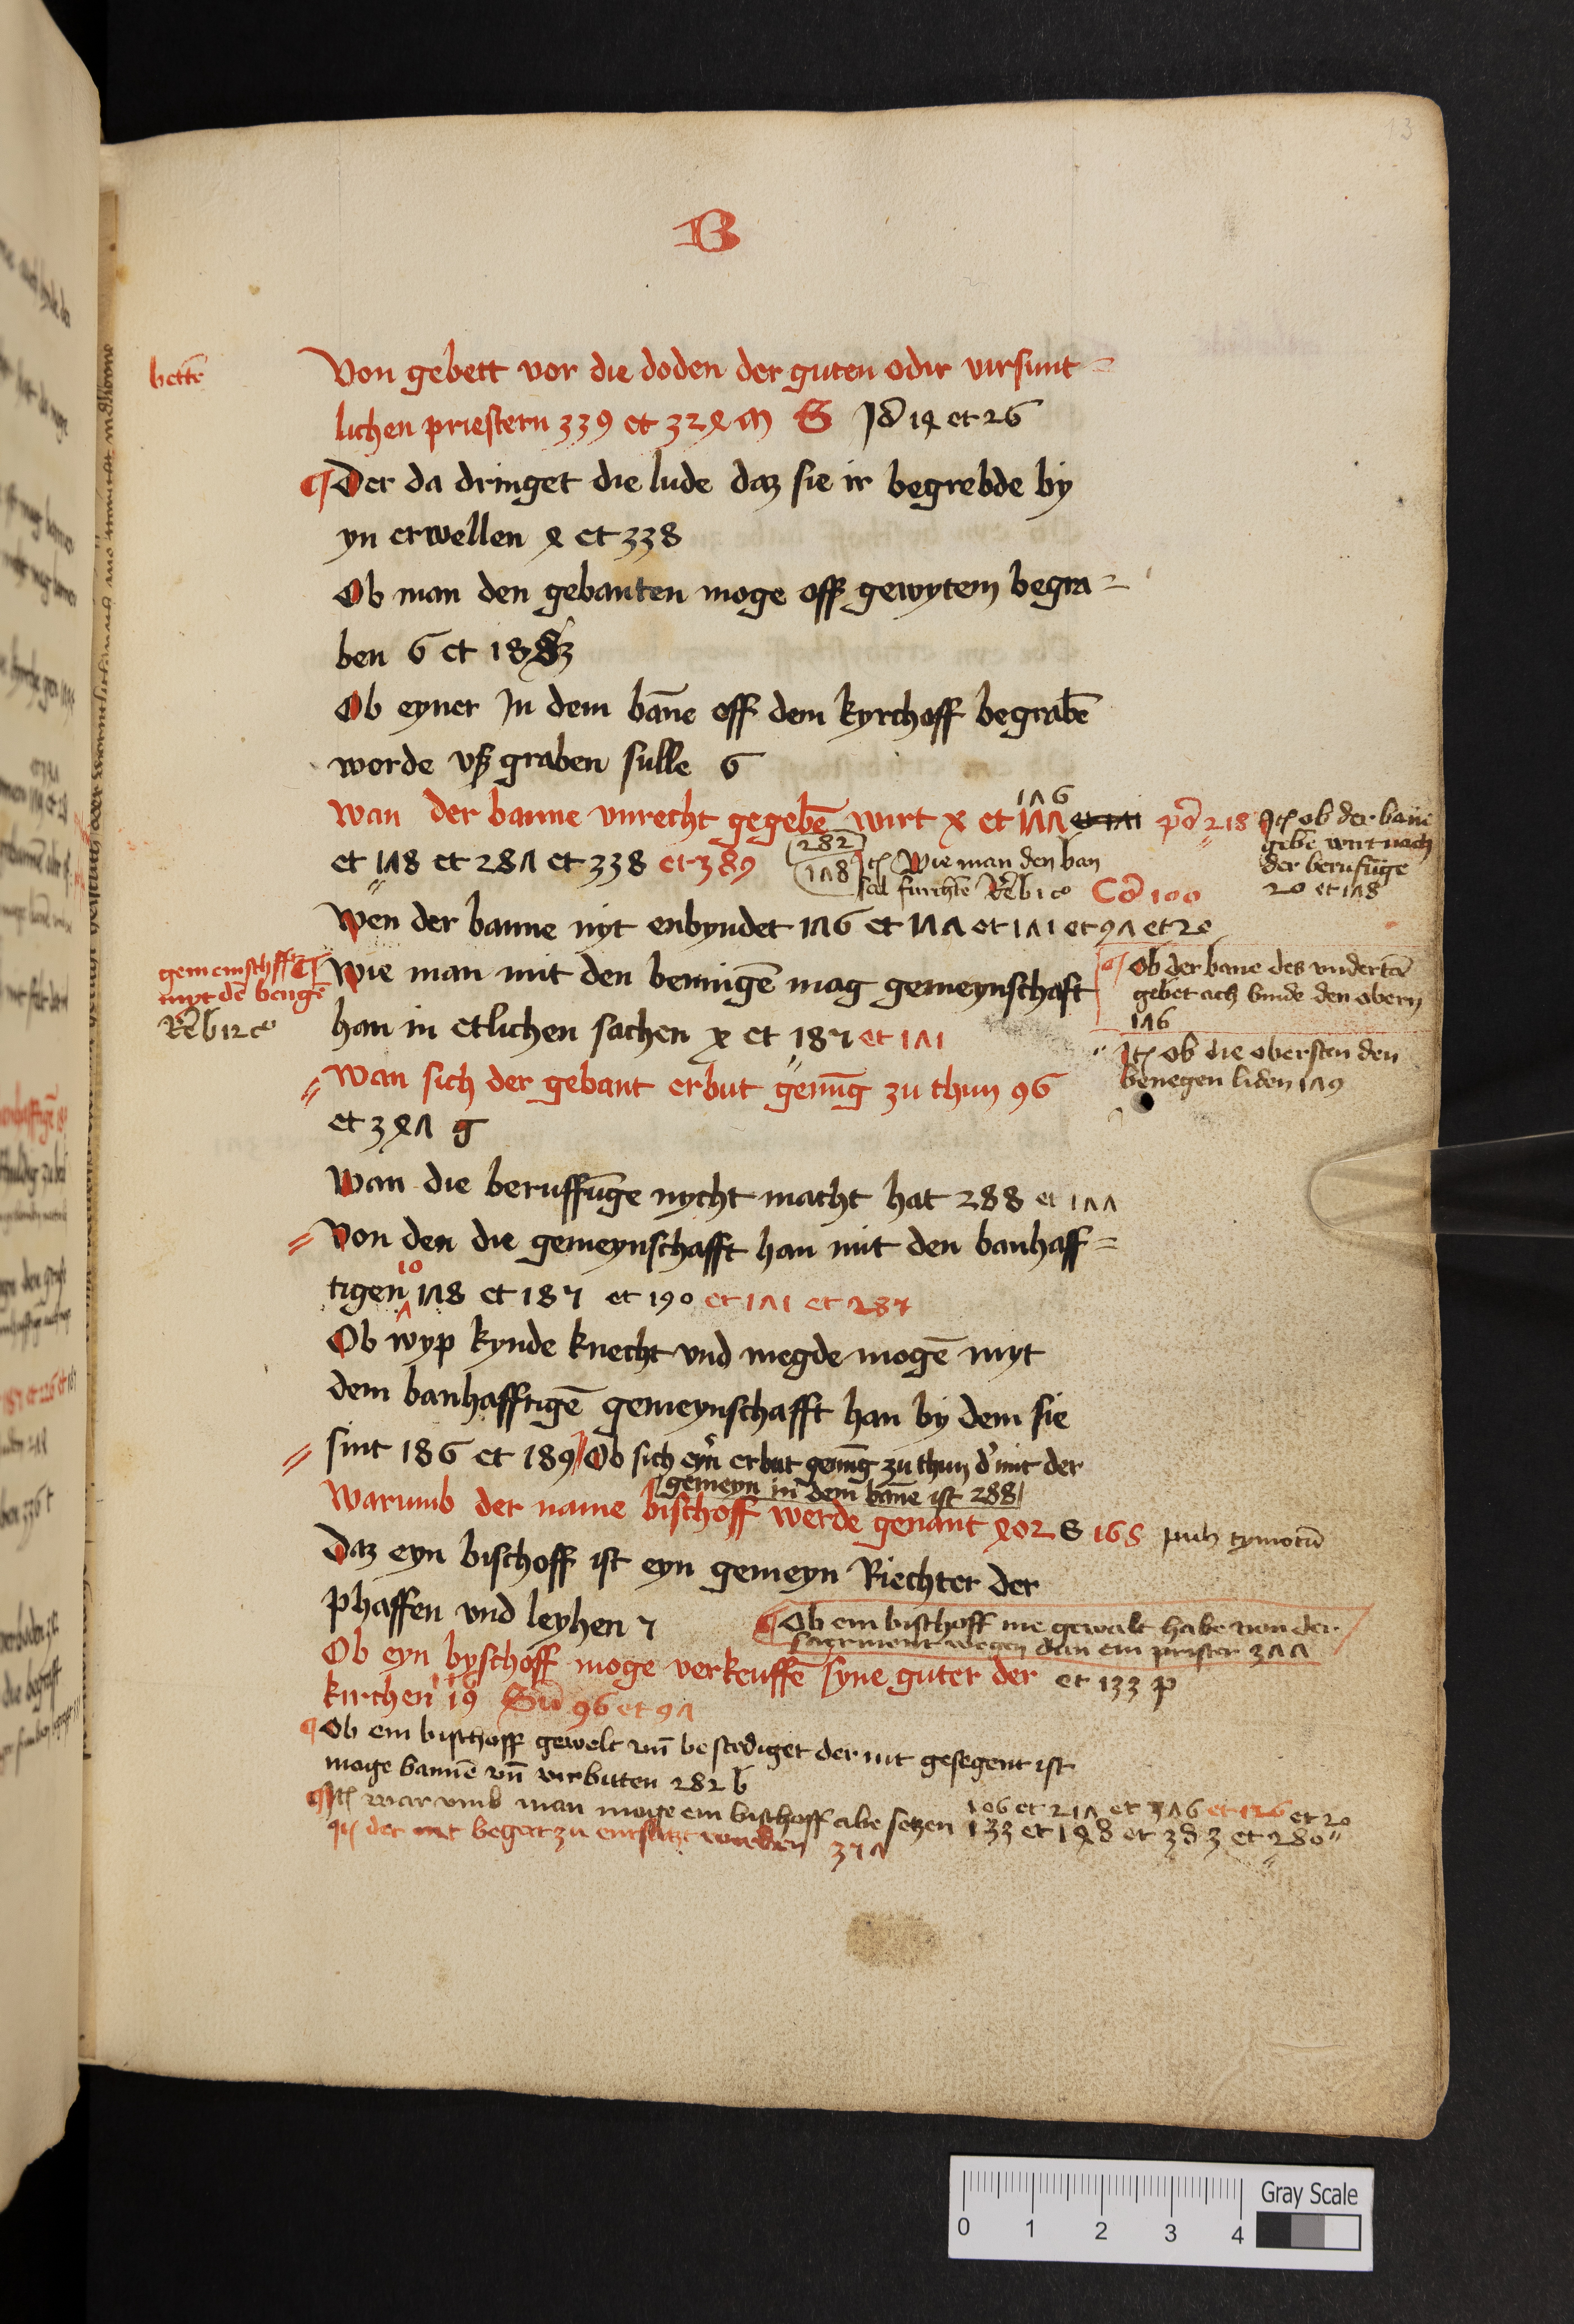 13
B
bettē
Von gebett vor die doden der guten oder virsunt=
lichen priestern 339 et 324 m S Jd 14 et 26
¶ Der da dringet die lude daz sie ir begrebde by
yn erwellen 4 et 338
Ob man den gebanten moge off gewytem begra=
ben 6 et 18
Ob eyner Jn dem bāne off dem kyrchoff begrabē
worde vß graben sulle 6
176
Wan der banne vnrecht gegebē wirt x et 177 et 171 pō 218
et 178 et 287 et 338 et 389
282
178 Jtē Wie man den ban
sal furchtē Rēb 1 co Cō 100
Jtē ob der bane
gebē wirt nach
der beruffūge
20 et 178
Wen der banne nyt enbyndet 176 et 177 et 171 et 97 et 20
gemeinschfft
myt dē bengē
Rēb 12 co
¶ Wie man mit den bennigē mag gemeynschaft
han in etlichen sachen x et 187 et 171
¶ Ob der bane des vndertā
gebet ach binde den obern
176
Jtē ob die obersten den
benegen liden 179
Wan sich der gebant erbut genūg zu thun 96
et 347 g
Wan die beruffūge nycht macht hat 288 et 177
Von den die gemeynschafft han mit den banhaff=
10
tigen 178 et 187 et 190 et 171 et 287
Ob wyp kynde knecht vnd megde mogē myt
dem banhafftigē gemeynschafft han by dem sie
sint 186 et 189 Ob sich eyn erbut genūg zu thun d' mit der
gemeyn in dem bāne ist 288
Warumb der name bischoff werde genant 402 S 165 tymotū
Daz eyn bischoff ist eyn gemeyn Riechter der
phaffen vnd leyhen 7
¶ Ob ein bischoff me gewalt habe von der
sacrment wegen dan ein prister 377
Ob eyn byschoff moge verkeuffē syne guter der et 133 p
kirchen 19 Sū 96 et 97
¶ Ob ein bischoff gewelt vn̄ bestediget der nit gesegent ist
moge bannē vn̄ verbitten 282 b
¶ Jtē war vmb man moge ein bischoff abe setzen 106 et 217 et 376 et 126 et 20
133 et 148 et 383 et 280
Jtē der nit begert zu entsatzt werden 377